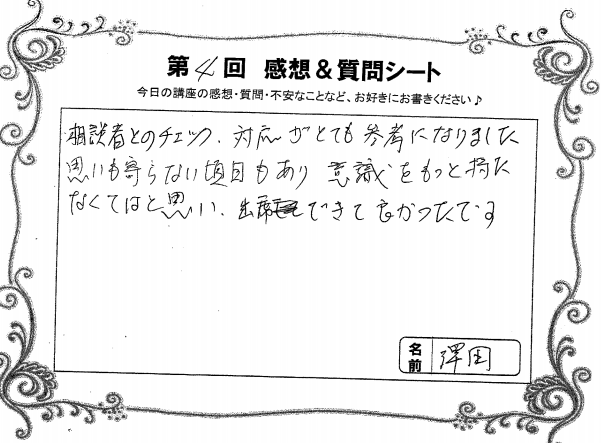 第4回 感想&質問シート
今日の講座の感想・質問・不安なことなど、お好きにお書きください♪
相談者とのチェック、対応がとても参考になりました
思いも寄らない項目もあり 意識をもっと持た
なくてはと思い、出席できて良かったです
名前 澤田